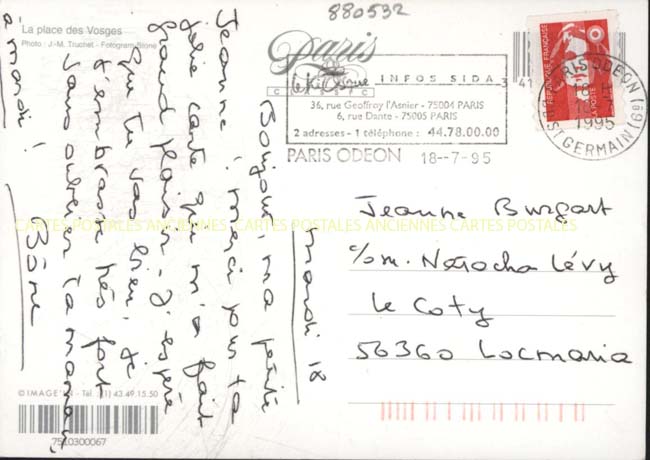 880532
La place des Vosges
Photo : J.-M. Truchet - Fotogram Stone
Paris
INFOS SIDA
36, rue Geoffroy l'Asnier - 75004 PARIS
6, rue Dante - 75005 PARIS
2 adresses - 1 téléphone : 44.78.00.00
PARIS ODEON 18--7-95
3 41
REPUBLIQUE FRANÇAISE
LA POSTE
PARIS ODEON (6e)
18-7
1995
ST GERMAIN
mardi 18
Bonjour, ma petite
Jeanne ! merci pour ta
jolie carte qui m'a fait
grand plaisir - J'espère
que tu vas bien, je
t'embrasse très fort
sans oublier ta maman,
à mardi !
Jeanne Burgart
c/o m. Natacha Lévy
Le Coty
56360 Locmaria
CARTES POSTALES ANCIENNES CARTES POSTALES ANCIENNES CARTES POSTALES ANCIENNES
© IMAGE'IN - Tél. (1) 43.49.15.50